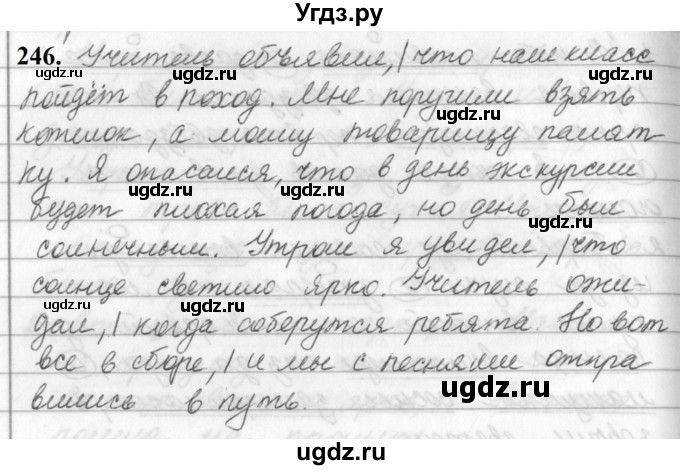 Угдз.ру
246. Учитель объявил, | что наш класс
пойдёт в поход. Мне поручили взять
котелок, а моему товарищу палат-
ку. Я опасался, что в день экскурсии
будет плохая погода, но день был
солнечным. Утром я увидел, | что
солнце светило ярко. Учитель ожи-
дал, | когда соберутся ребята. Но вот
все в сборе, | и мы с песнями отпра
вились в путь.
ugdz.ru ugdz.ru
ugdz.ru ugdz.ru
ugdz.ru ugdz.ru
ugdz.ru ugdz.ru
ugdz.ru ugdz.ru
ugdz.ru
ugdz.ru ugdz.ru